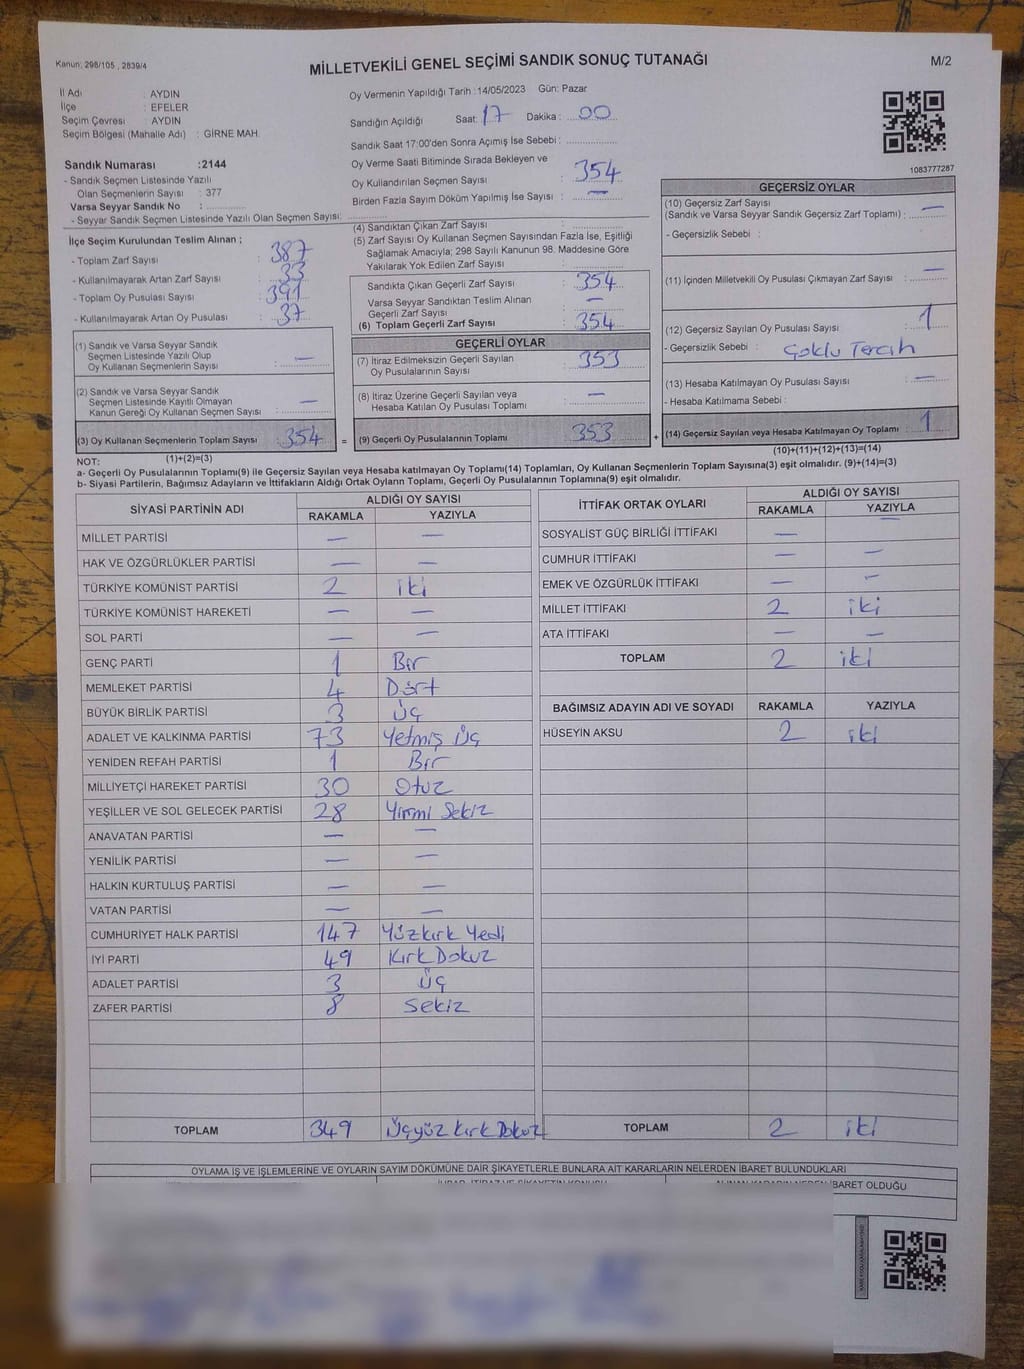 Kanun: 298/105, 2839/4
MİLLETVEKİLİ GENEL SEÇİMİ SANDIK SONUÇ TUTANAĞI
M/2
İl Adı : AYDIN
İlçe : EFELER
Seçim Çevresi : AYDIN
Seçim Bölgesi (Mahalle Adı) : GİRNE MAH.
Sandık Numarası :2144
- Sandık Seçmen Listesinde Yazılı
Olan Seçmenlerin Sayısı : 377
Varsa Seyyar Sandık No :
- Seyyar Sandık Seçmen Listesinde Yazılı Olan Seçmen Sayısı:
Oy Vermenin Yapıldığı Tarih :14/05/2023 Gün: Pazar
Sandığın Açıldığı Saat: 17 Dakika : 00
Sandık Saat 17:00'den Sonra Açımış İse Sebebi :
Oy Verme Saati Bitiminde Sırada Bekleyen ve
Oy Kullandırılan Seçmen Sayısı : 354
Birden Fazla Sayım Döküm Yapılmış İse Sayısı : —
1083777287
İlçe Seçim Kurulundan Teslim Alınan ;
- Toplam Zarf Sayısı : 387
- Kullanılmayarak Artan Zarf Sayısı : 33
- Toplam Oy Pusulası Sayısı : 391
- Kullanılmayarak Artan Oy Pusulası : 37
(1) Sandık ve Varsa Seyyar Sandık
Seçmen Listesinde Yazılı Olup
Oy Kullanan Seçmenlerin Sayısı : —
(2) Sandık ve Varsa Seyyar Sandık
Seçmen Listesinde Kayıtlı Olmayan
Kanun Gereği Oy Kullanan Seçmen Sayısı : —
(3) Oy Kullanan Seçmenlerin Toplam Sayısı : 354 =
(1)+(2)=(3)
(4) Sandıktan Çıkan Zarf Sayısı :
(5) Zarf Sayısı Oy Kullanan Seçmen Sayısından Fazla İse, Eşitliği
Sağlamak Amacıyla; 298 Sayılı Kanunun 98. Maddesine Göre
Yakılarak Yok Edilen Zarf Sayısı :
Sandıkta Çıkan Geçerli Zarf Sayısı : 354
Varsa Seyyar Sandıktan Teslim Alınan
Geçerli Zarf Sayısı : —
(6) Toplam Geçerli Zarf Sayısı : 354
GEÇERLİ OYLAR
(7) İtiraz Edilmeksizin Geçerli Sayılan
Oy Pusulalarının Sayısı : 353
(8) İtiraz Üzerine Geçerli Sayılan veya
Hesaba Katılan Oy Pusulası Toplamı : —
(9) Geçerli Oy Pusulalarının Toplamı : 353 +
GEÇERSİZ OYLAR
(10) Geçersiz Zarf Sayısı
(Sandık ve Varsa Seyyar Sandık Geçersiz Zarf Toplamı) : —
- Geçersizlik Sebebi :
(11) İçinden Milletvekili Oy Pusulası Çıkmayan Zarf Sayısı : —
(12) Geçersiz Sayılan Oy Pusulası Sayısı : 1
- Geçersizlik Sebebi : Çoklu Tercih
(13) Hesaba Katılmayan Oy Pusulası Sayısı : —
- Hesaba Katılmama Sebebi :
(14) Geçersiz Sayılan veya Hesaba Katılmayan Oy Toplamı : 1
(10)+(11)+(12)+(13)=(14)
NOT:
a- Geçerli Oy Pusulalarının Toplamı(9) ile Geçersiz Sayılan veya Hesaba katılmayan Oy Toplamı(14) Toplamları, Oy Kullanan Seçmenlerin Toplam Sayısına(3) eşit olmalıdır. (9)+(14)=(3)
b- Siyasi Partilerin, Bağımsız Adayların ve İttifakların Aldığı Ortak Oyların Toplamı, Geçerli Oy Pusulalarının Toplamına(9) eşit olmalıdır.
SİYASİ PARTİNİN ADI ALDIĞI OY SAYISI
RAKAMLA YAZIYLA
MİLLET PARTİSİ — —
HAK VE ÖZGÜRLÜKLER PARTİSİ — —
TÜRKİYE KOMÜNİST PARTİSİ 2 iki
TÜRKİYE KOMÜNİST HAREKETİ — —
SOL PARTİ — —
GENÇ PARTİ 1 Bir
MEMLEKET PARTİSİ 4 Dört
BÜYÜK BİRLİK PARTİSİ 3 üç
ADALET VE KALKINMA PARTİSİ 73 Yetmiş üç
YENİDEN REFAH PARTİSİ 1 Bir
MİLLİYETÇİ HAREKET PARTİSİ 30 Otuz
YEŞİLLER VE SOL GELECEK PARTİSİ 28 Yirmi Sekiz
ANAVATAN PARTİSİ — —
YENİLİK PARTİSİ — —
HALKIN KURTULUŞ PARTİSİ — —
VATAN PARTİSİ — —
CUMHURİYET HALK PARTİSİ 147 Yüzkırk Yedi
İYİ PARTİ 49 Kırk Dokuz
ADALET PARTİSİ 3 üç
ZAFER PARTİSİ 8 Sekiz
TOPLAM 349 Üçyüz Kırk Dokuz
İTTİFAK ORTAK OYLARI ALDIĞI OY SAYISI
RAKAMLA YAZIYLA
SOSYALİST GÜÇ BİRLİĞİ İTTİFAKI — —
CUMHUR İTTİFAKI — —
EMEK VE ÖZGÜRLÜK İTTİFAKI — —
MİLLET İTTİFAKI 2 iki
ATA İTTİFAKI — —
TOPLAM 2 iki
BAĞIMSIZ ADAYIN ADI VE SOYADI RAKAMLA YAZIYLA
HÜSEYİN AKSU 2 iki
TOPLAM 2 iki
OYLAMA İŞ VE İŞLEMLERİNE VE OYLARIN SAYIM DÖKÜMÜNE DAİR ŞİKAYETLERLE BUNLARA AİT KARARLARIN NELERDEN İBARET BULUNDUKLARI
İBARET OLDUĞU